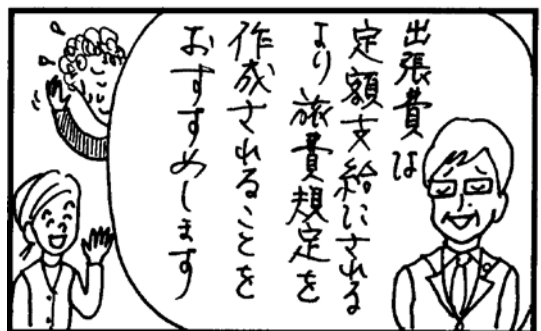 出張費は
定額支給にされる
より旅費規定を
作成されることを
おすすめします